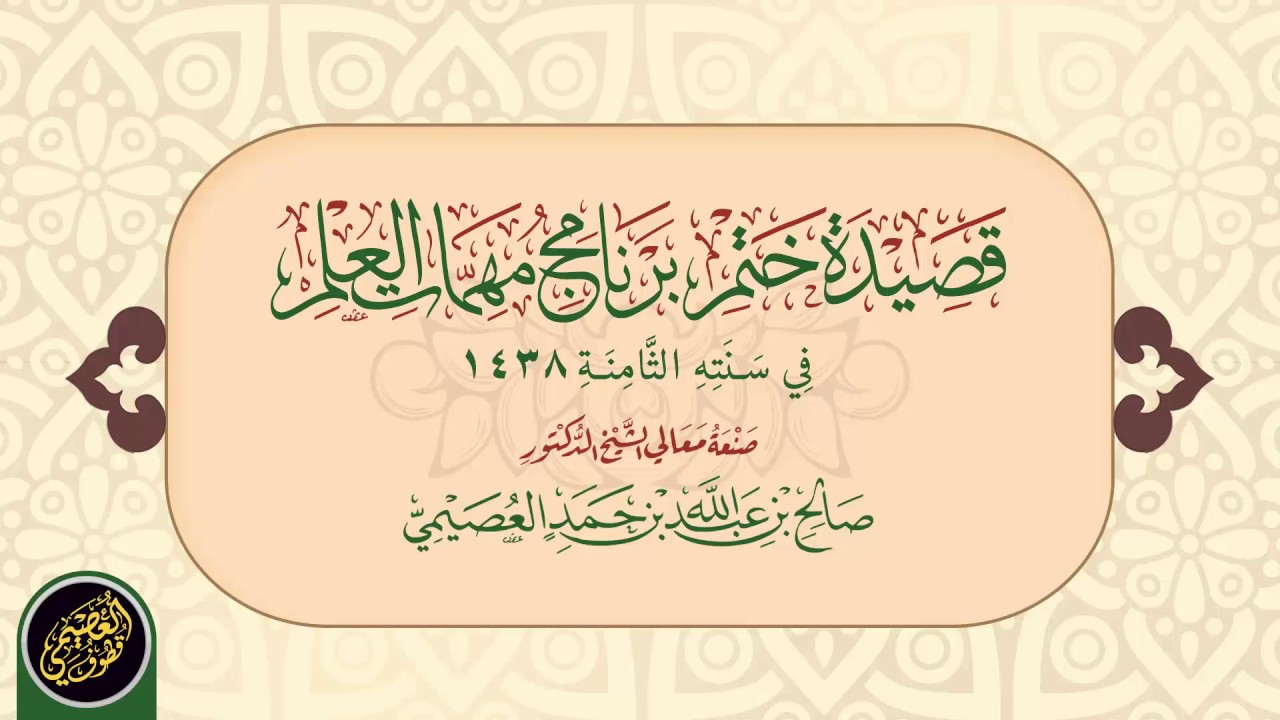 قَصِيْدَةُ خَتْمِ بَرْنَامَجِ مُهِمَّاتِ الْعِلْمِ
فِي سَنَتِهِ الثَّامِنَةِ ١٤٣٨
صَنْعَةُ مَعَالِي الشَّيْخِ الدُّكْتُورِ
صَالِحِ بْنِ عَبْدِ اللَّهِ بْنِ حَمَدٍ الْعُصَيْمِيِّ
قُطُوفُ الْعُصَيْمِي